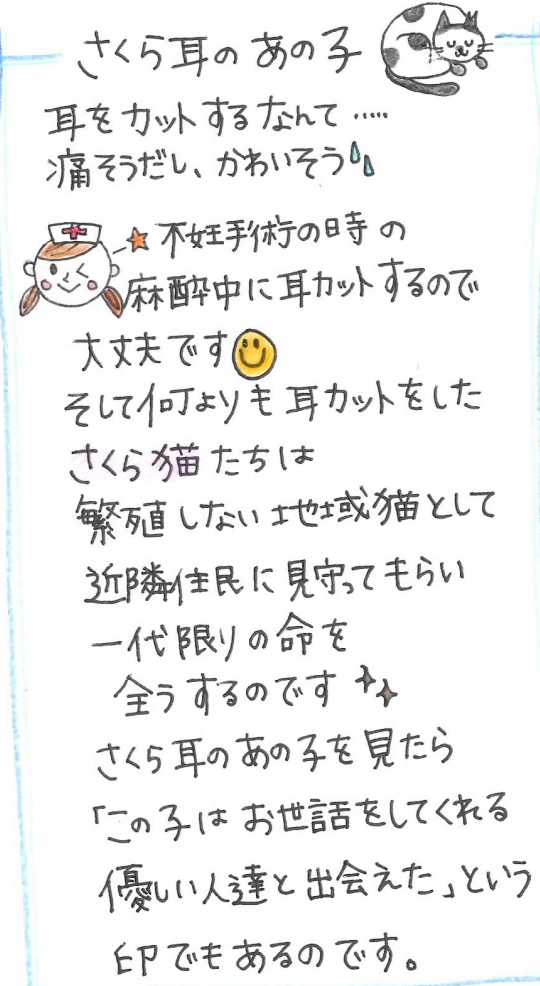 さくら耳のあの子
耳をカットするなんて……
痛そうだし、かわいそう
不妊手術の時の
麻酔中に耳カットするので
大丈夫です
そして何よりも耳カットをした
さくら猫たちは
繁殖しない地域猫として
近隣住民に見守ってもらい
一代限りの命を
全うするのです
さくら耳のあの子を見たら
「この子はお世話をしてくれる
優しい人達と出会えた」という
印でもあるのです。